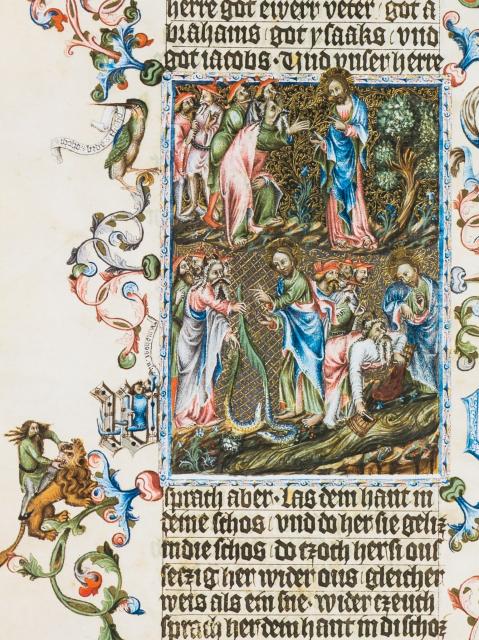 herre got ewerr veter / got a
brahams / got ysaaks / vnd
got iacobs · Vnd vnser herre
sprach aber · Las dein hant in
deine schos / vnd do her sie geliz
in die schos / do tzoch her si ous
setzig her wider ous / gleicher
weis als ein sne · wider tzeuch
sprach her dein hant in di schoz